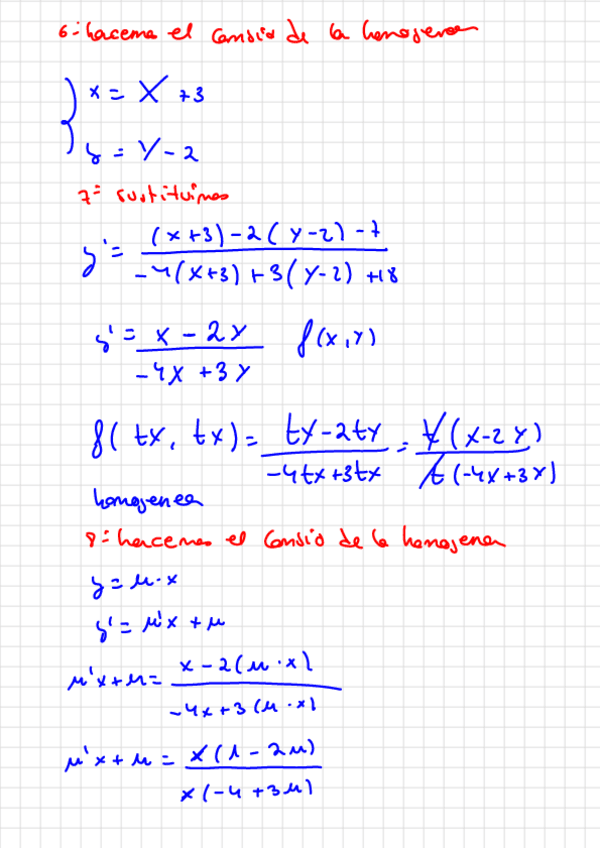 6º hacemos el cambio de la homogenea
{ x = X + 3
y = Y - 2
7º sustituimos
y' = ((x+3) - 2(y-2) - 7) / (-4(x+3) + 3(y-2) + 18)
y' = (x - 2y) / (-4x + 3y) f(x,y)
f(tx, tx) = (ty - 2ty) / (-4tx + 3tx) = t(x-2y) / t(-4x+3x)
homogenea
8º hacemos el cambio de la homogenea
y = μ·x
y' = μ'x + μ
μ'x + μ = (x - 2(μ·x)) / (-4x + 3(μ·x))
μ'x + μ = x(1 - 2μ) / x(-4 + 3μ)